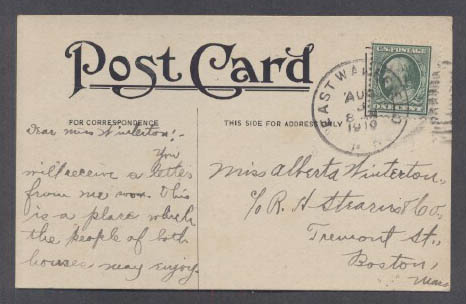 Post Card
FOR CORRESPONDENCE
THIS SIDE FOR ADDRESS ONLY
U.S. POSTAGE
ONE CENT
EAST WA
AUG
8
1910
Dear Miss Winterton!-
You
will receive a letter
from me soon. This
is a place which
the people of both
houses may enjoy.
Miss Alberta Winterton,
c/o R. H. Stearns & Co.,
Tremont St.,
Boston,
Mass